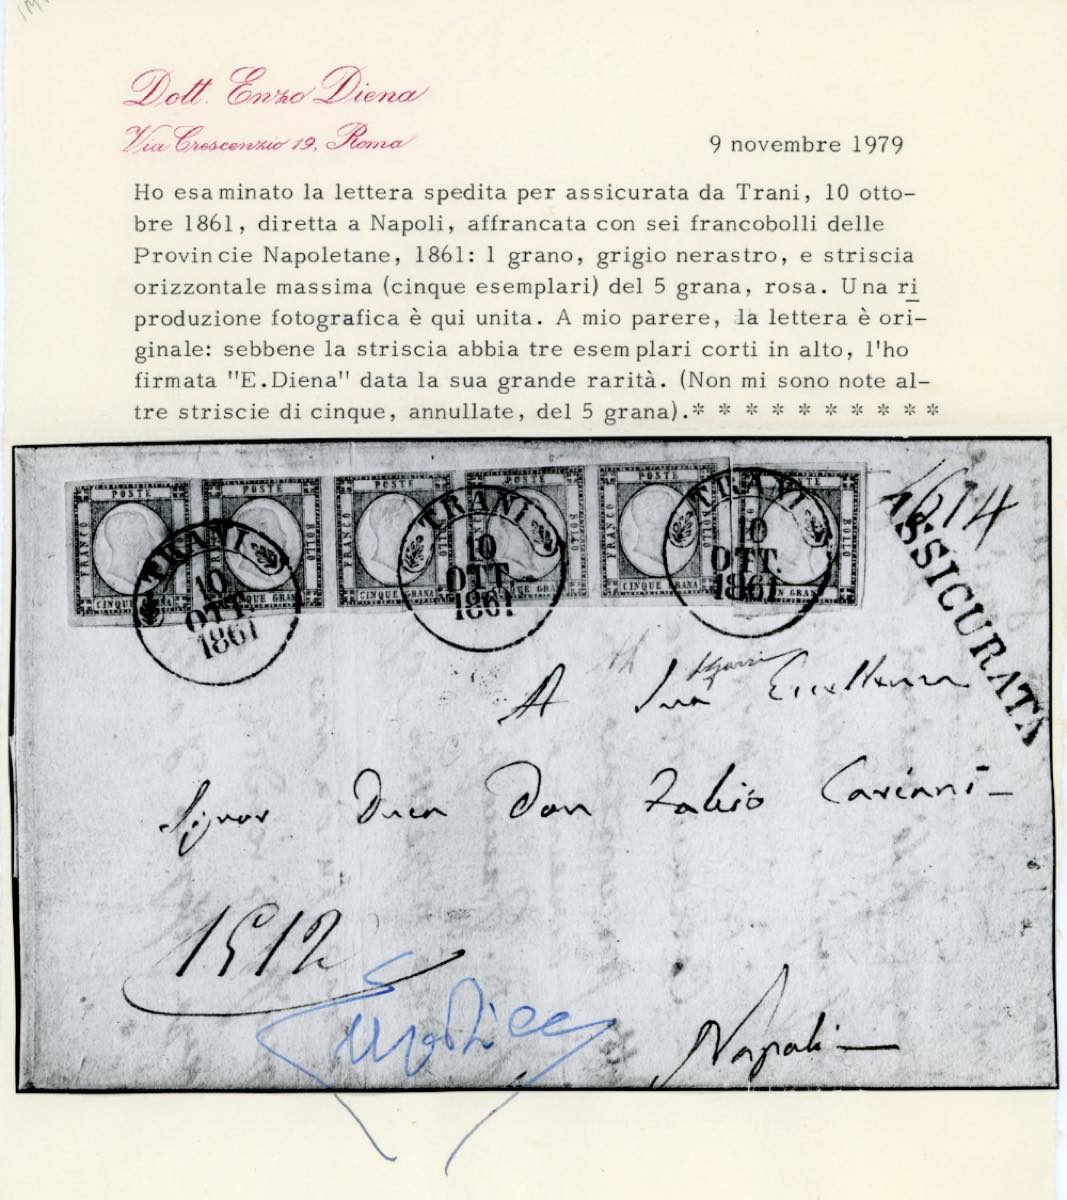 Dott. Enzo Diena
Via Crescenzio 19, Roma
9 novembre 1979
Ho esaminato la lettera spedita per assicurata da Trani, 10 otto-
bre 1861, diretta a Napoli, affrancata con sei francobolli delle
Provincie Napoletane, 1861: 1 grano, grigio nerastro, e striscia
orizzontale massima (cinque esemplari) del 5 grana, rosa. Una ri
produzione fotografica è qui unita. A mio parere, la lettera è ori-
ginale: sebbene la striscia abbia tre esemplari corti in alto, l'ho
firmata "E.Diena" data la sua grande rarità. (Non mi sono note al-
tre striscie di cinque, annullate, del 5 grana).* * * * * * * * * *
POSTE POSTE POSTE POSTE POSTE POSTE
FRANCO BOLLO FRANCO BOLLO FRANCO BOLLO
CINQUE GRANA CINQUE GRANA CINQUE GRANA CINQUE GRANA CINQUE GRANA UN GRANO
TRANI
10
OTT.
1861
TRANI
10
OTT.
1861
TRANI
10
OTT.
1861
1614
ASSICURATA
A Sua Eccellenza
Signor Duca Don Fabio Carcani-
1512
Napoli